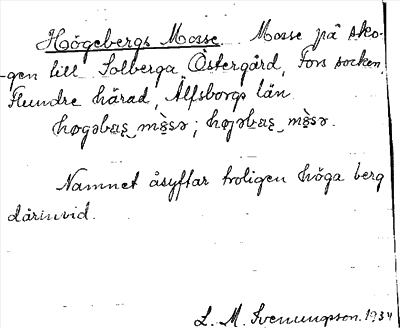 Högebergs Mosse. Mosse på sko-
gen till Solberga Östergård, Fors socken,
Flundre härad, Älfsborgs län
høgəbæʂ mòsə; højəbæʂ mòsə.
Namnet åsyftar troligen höga berg
därinvid.
L. M. Svenungsson. 1934